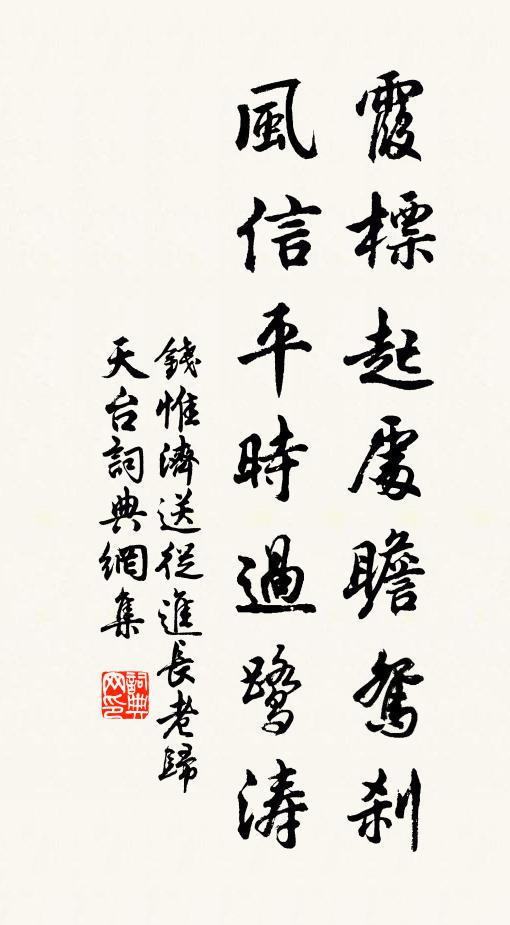 霞標起處瞻鴛刹
風信平時過鷺濤
錢惟濟送從進長老歸
天台詞典網集
詞典網印